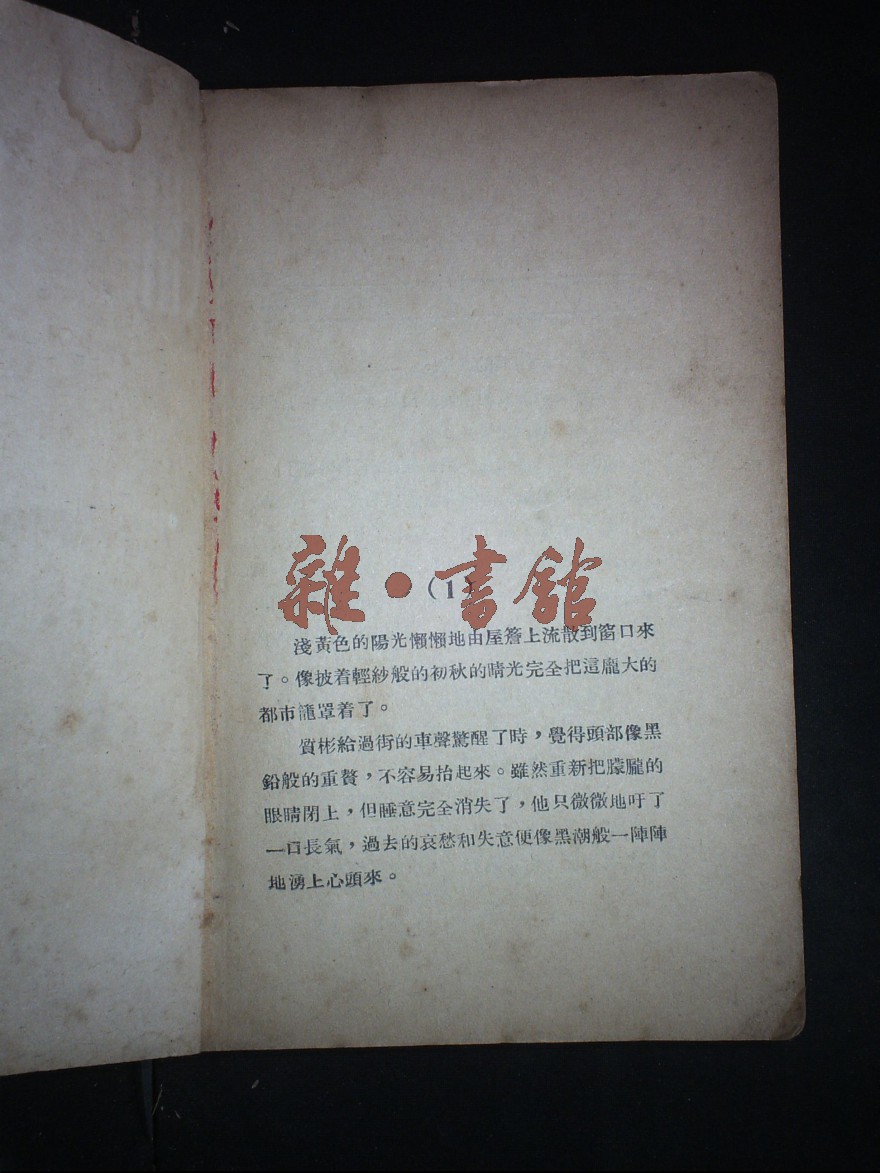 雜·書館
(1)
淺黃色的陽光懶懶地由屋簷上流散到窗口來
了。像披着輕紗般的初秋的晴光完全把這龐大的
都市籠罩着了。
質彬給過街的車聲驚醒了時，覺得頭部像黑
鉛般的重贅，不容易抬起來。雖然重新把朦朧的
眼睛閉上，但睡意完全消失了，他只微微地吁了
一口長氣，過去的哀愁和失意便像黑潮般一陣陣
地湧上心頭來。